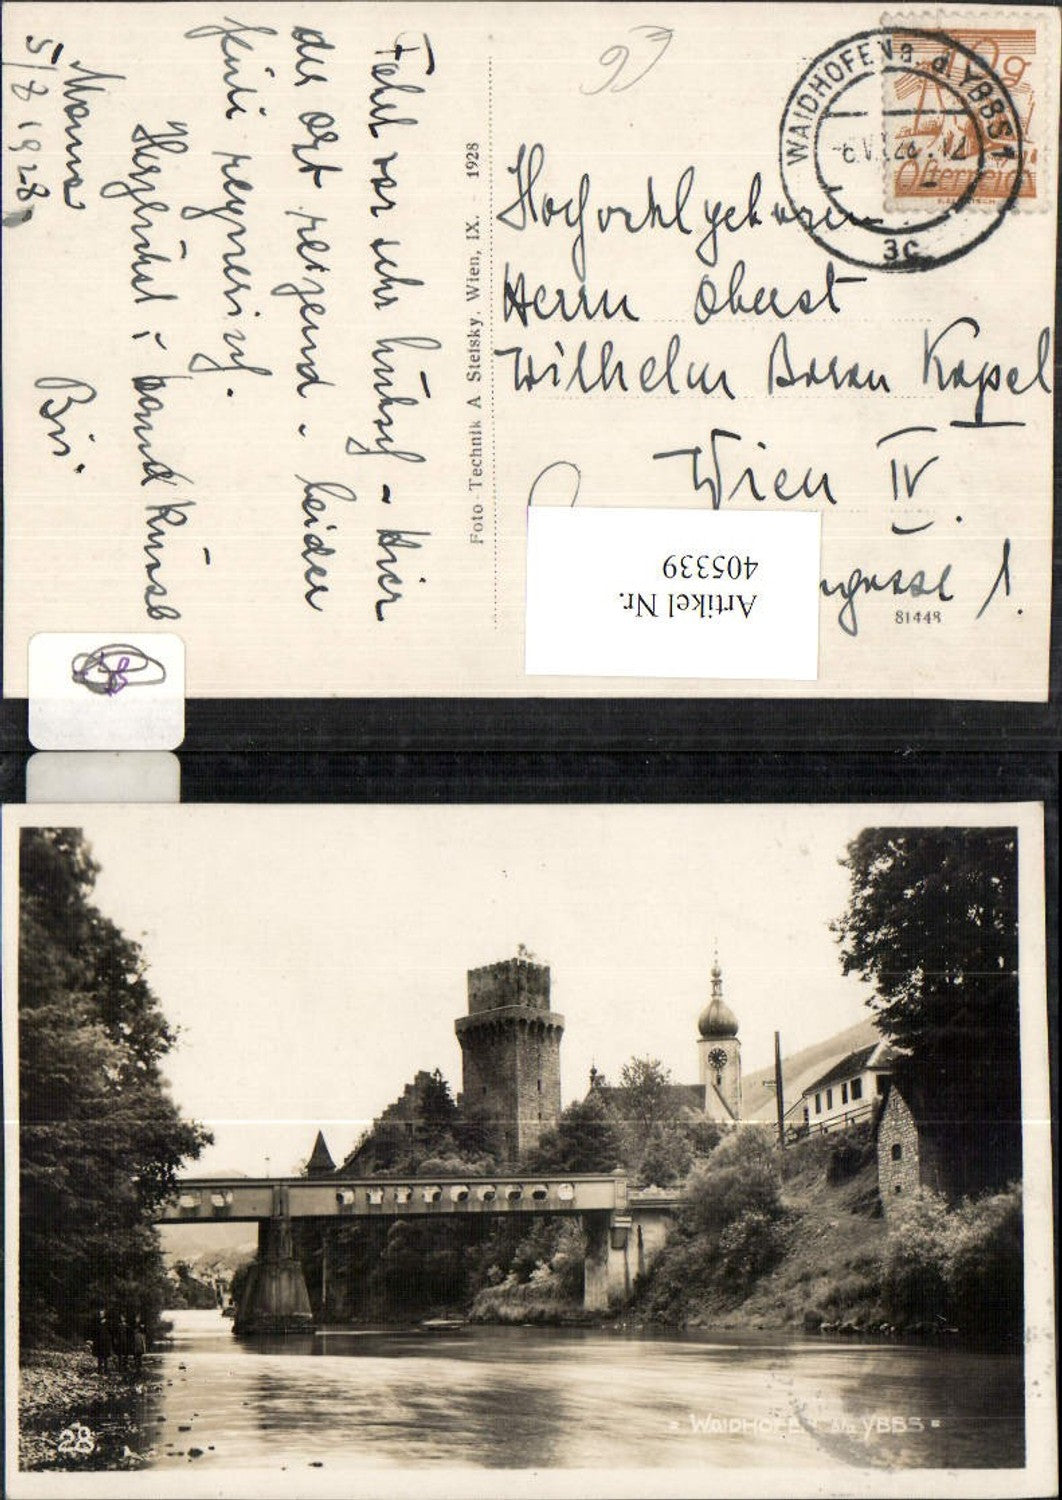 Fahrt war sehr hübsch - Hier
der Ort reizend. leider
heute regnerisch.
Herzlichst i Hand Küsse
Bis.
Mama
5/8 1928
Foto-Technik A Stefsky, Wien, IX. - 1928
WAIDHOFEN a. d YBBS 1
3c
10g
Österreich
Hochwohlgeboren
Herrn Oberst
Wilhelm Baron Kapel
Wien IV.
ngasse 1.
81448
Artikel Nr.
405339
28
WAIDHOFEN a/d YBBS